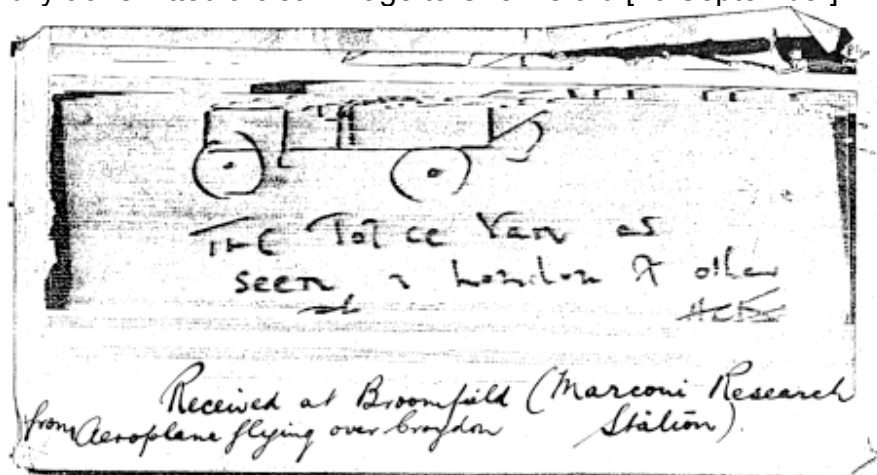 The Police Van as
seen in London & other
Received at Broomfield (Marconi Research
from Aeroplane flying over Croydon Station).